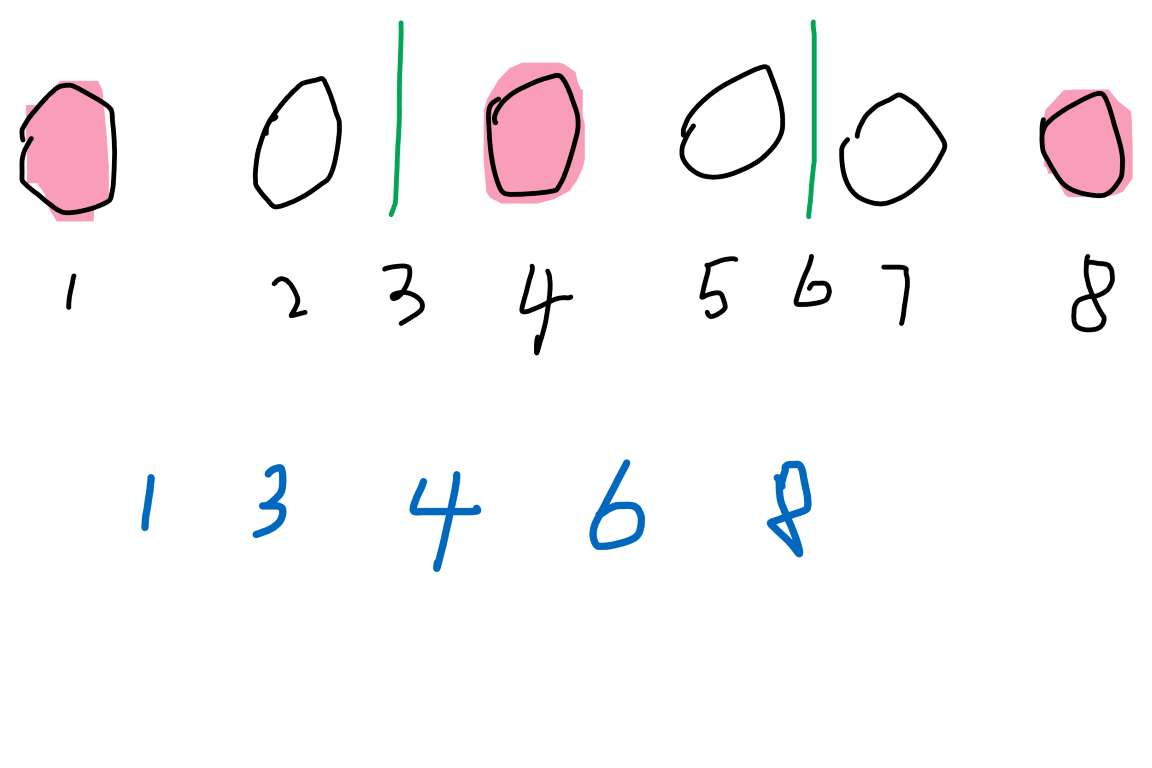 1 2 3 4 5 6 7 8
1 3 4 6 8